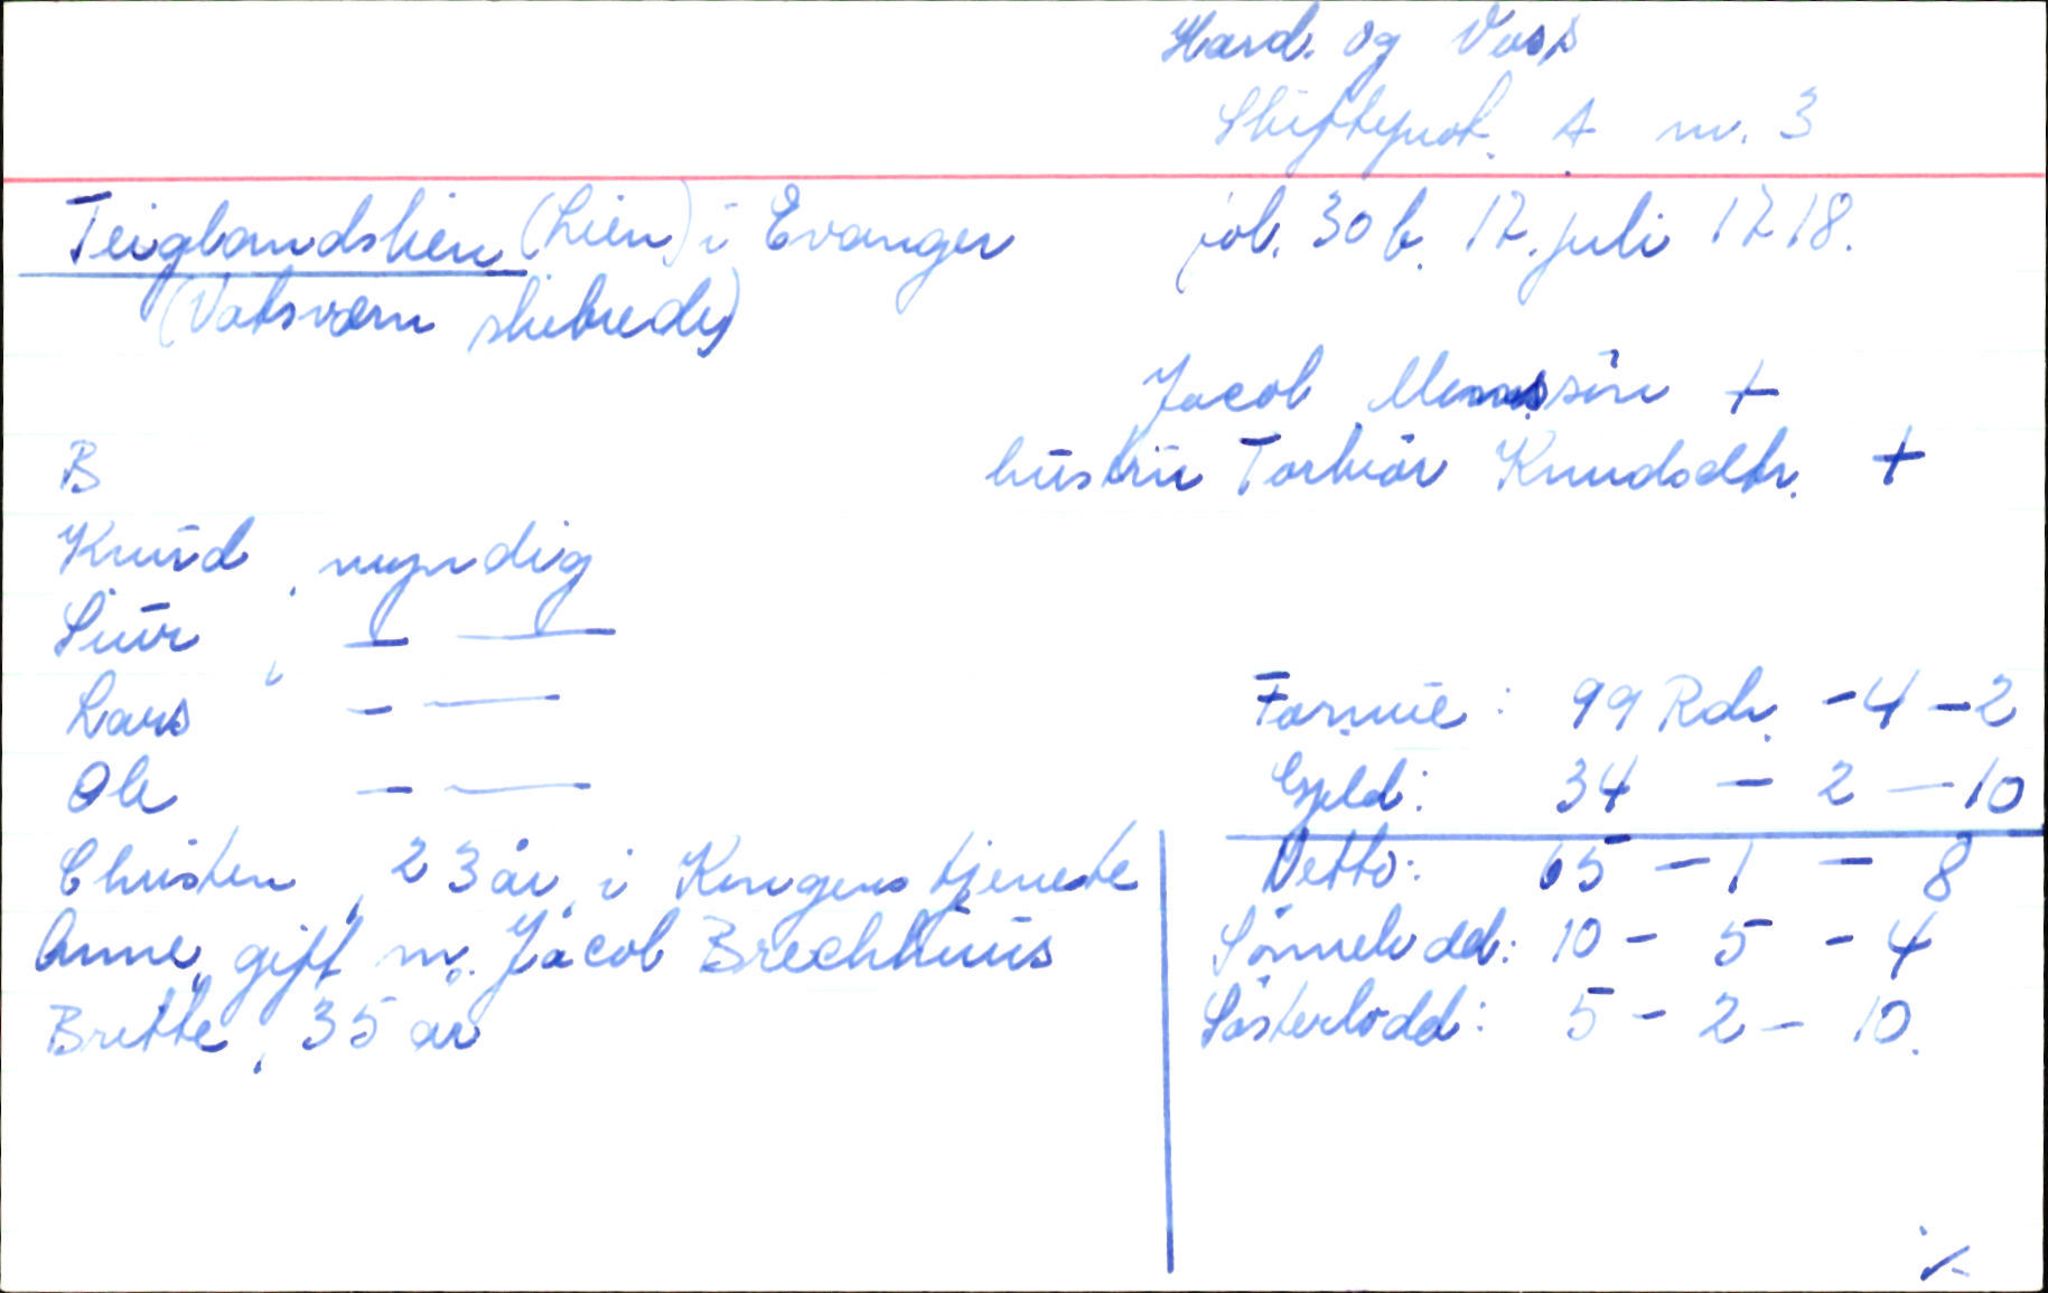 Hard. og Voss
Skifteprot. A nr. 3
Teiglandslien (Lien) i Evanger fol. 30 b. 17. juli 1718.
(Vatsværn skibrede)
Jacob Monssøn +
hustru Torbiør Knudsdtr. +
B
Knud, myndig
Siur, — —
Lars - —
Ole - —
Formue: 99 Rdr. - 4 - 2
Gjeld: 34 - 2 - 10
Netto: 65 - 1 - 8
Sønnelodd: 10 - 5 - 4
Søsterlodd: 5 - 2 - 10.
Christen, 23 år, i Kongens tjeneste
Anne, gift m. Jacob Brechhuus
Brette, 35 år